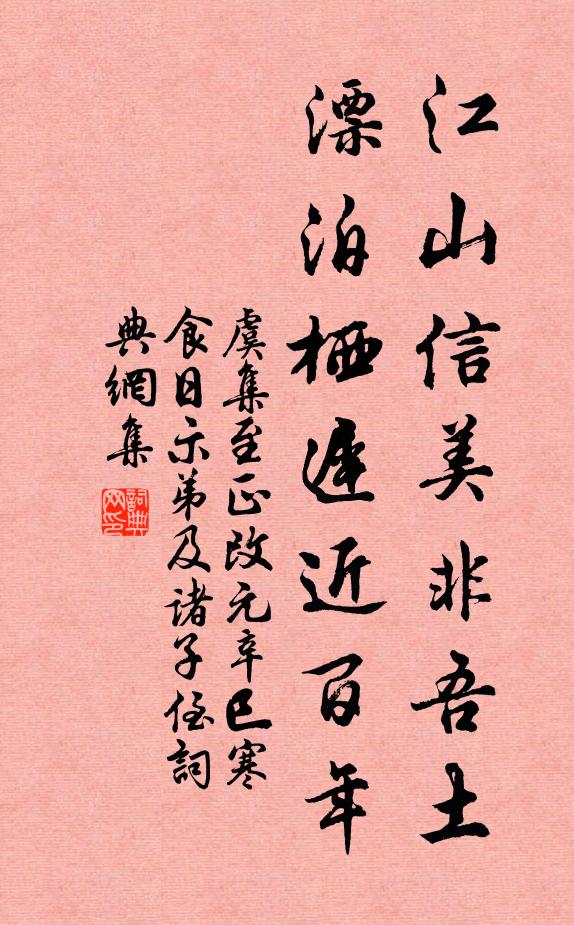 江山信美非吾土
漂泊栖遲近百年
虞集至正改元辛巳寒
食日示弟及諸子侄詞
典網集
詞典網印